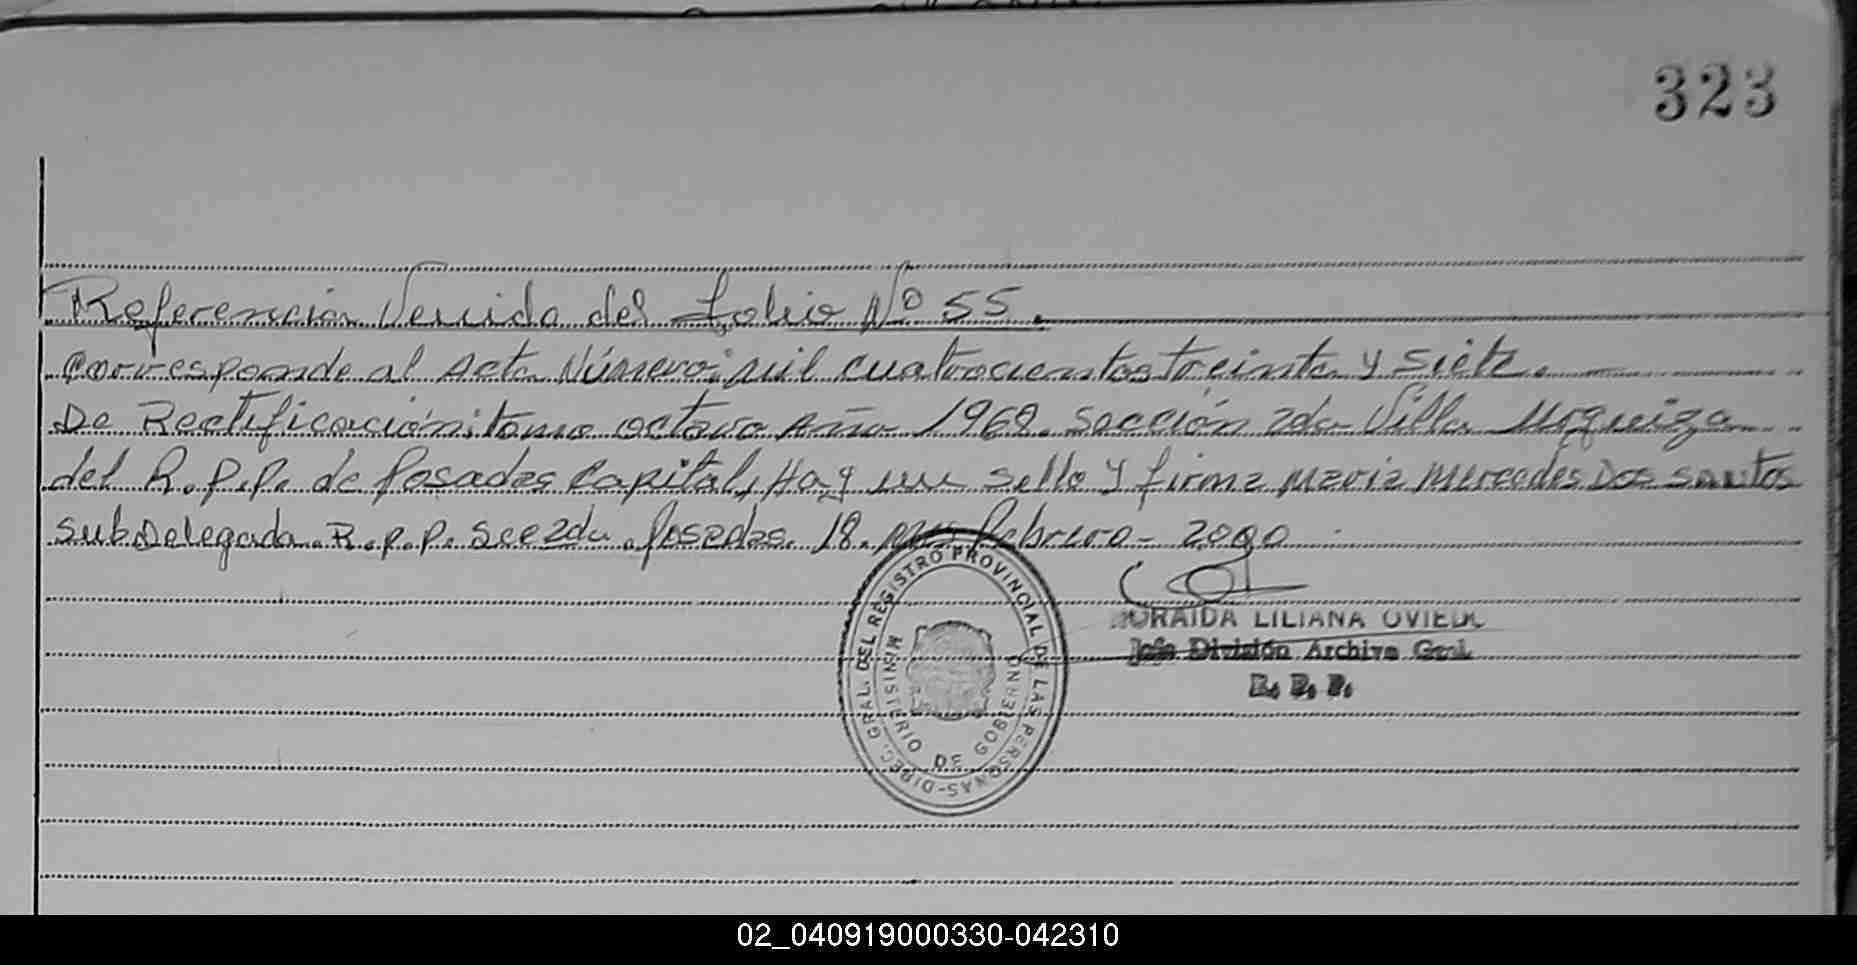 323
Referencia Venida del folio Nº 55.
Corresponde al Acta Número: mil cuatrocientos treinta y siete.
De Rectificación: tomo octavo Año 1968. Sección 2da Villa Urquiza
del R.P.P. de Posadas Capital, Hay un sello y firma Maria Mercedes Dos Santos
SubDelegada. R.P.P. Scc 2da. Posadas. 18. Febrero - 2000
DIREC. GRAL. DEL REGISTRO PROVINCIAL DE LAS PERSONAS-
MINISTERIO DE GOBIERNO
LILIANA OVIEDO
Jefe División Archivo Gral.
R. P. P.
02_040919000330-042310